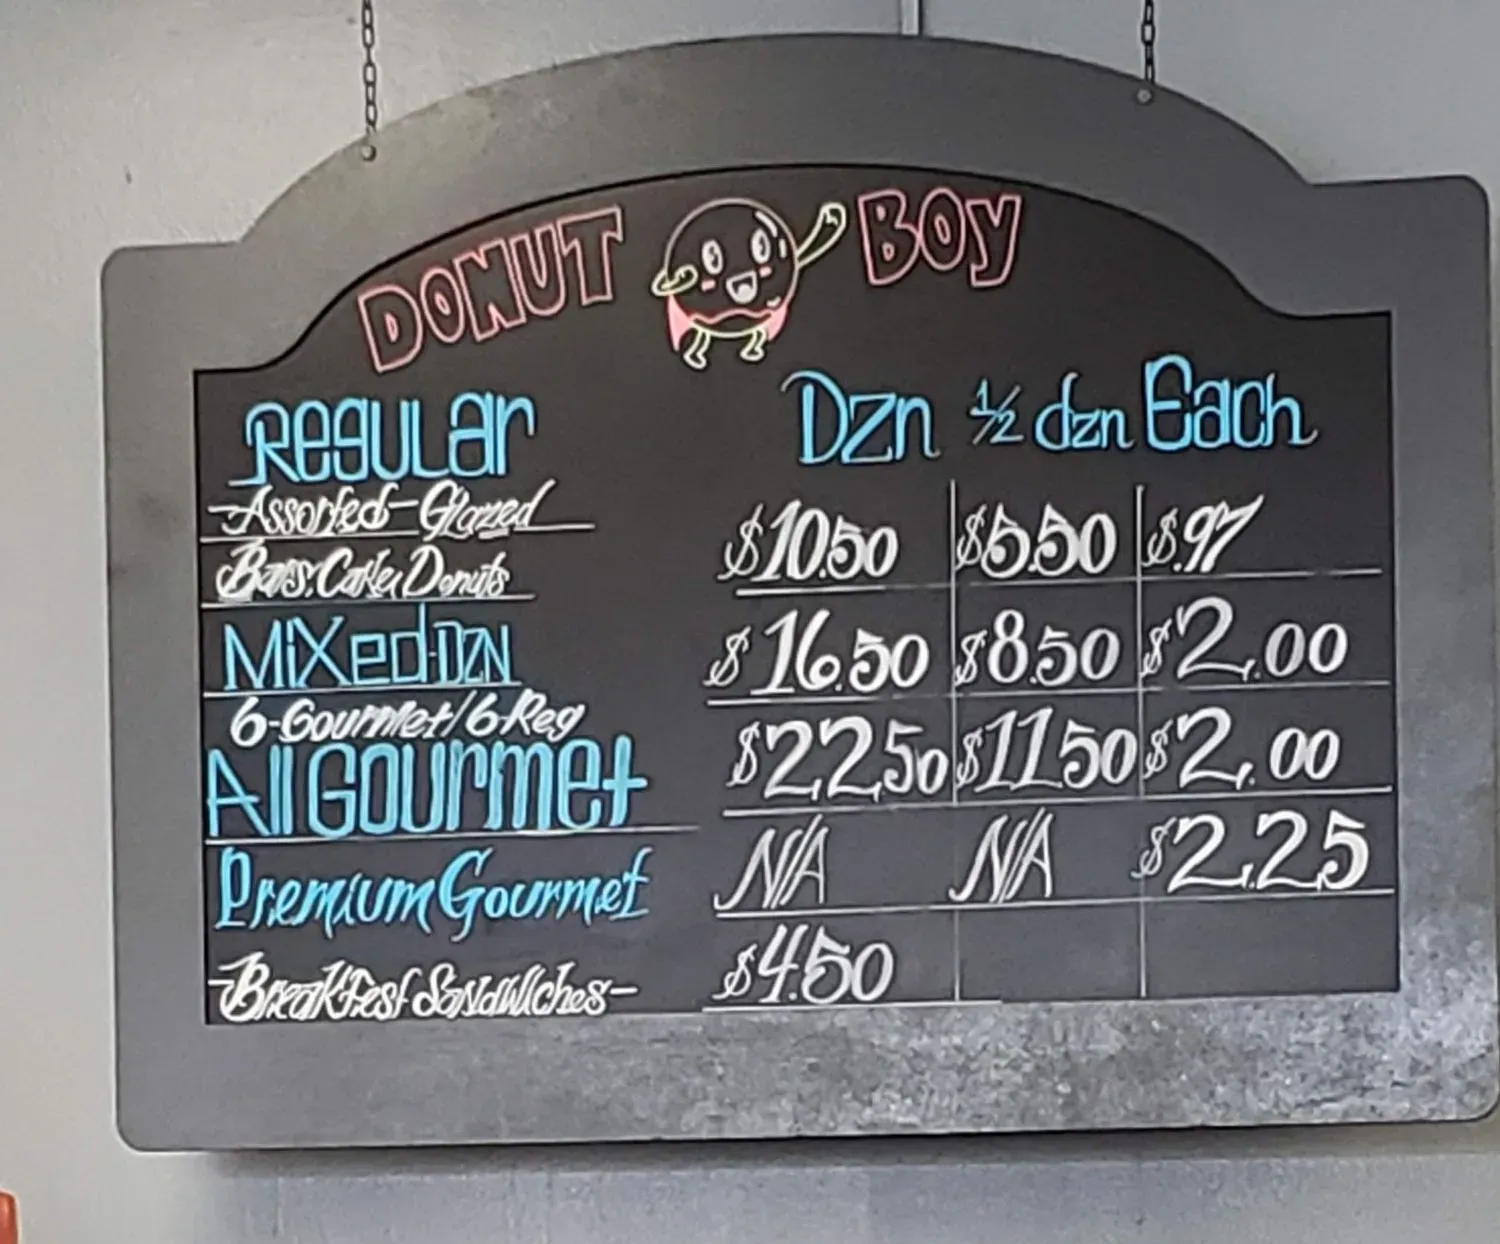 DONUT BOY
Regular Dzn ½ dzn Each
-Assorted-Glazed
Bars, Cake Donuts $10.50 $5.50 $.97
Mixed-DZN $16.50 $8.50 $2.00
6-Gourmet/6-Reg
All Gourmet $22.50 $11.50 $2.00
Premium Gourmet N/A N/A $2.25
-Breakfest Sandwiches- $4.50